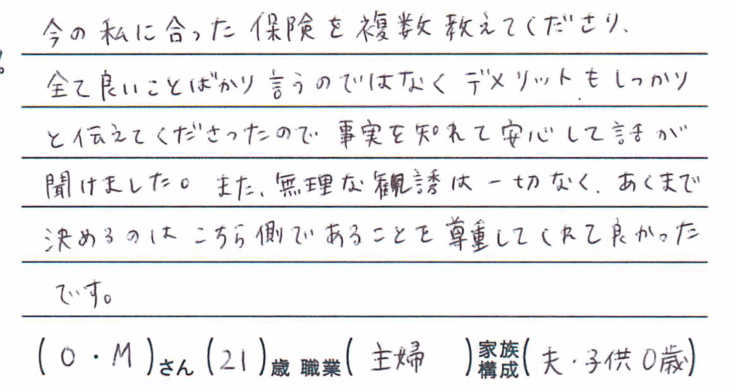 今の私に合った保険を複数教えてくださり、
全て良いことばかり言うのではなくデメリットもしっかり
と伝えてくださったので事実を知れて安心して話が
聞けました。また、無理な観誘は一切なく、あくまで
決めるのはこちら側であることを尊重してくれて良かった
です。
(O・M)さん(21)歳 職業(主婦)家族構成(夫・子供0歳)